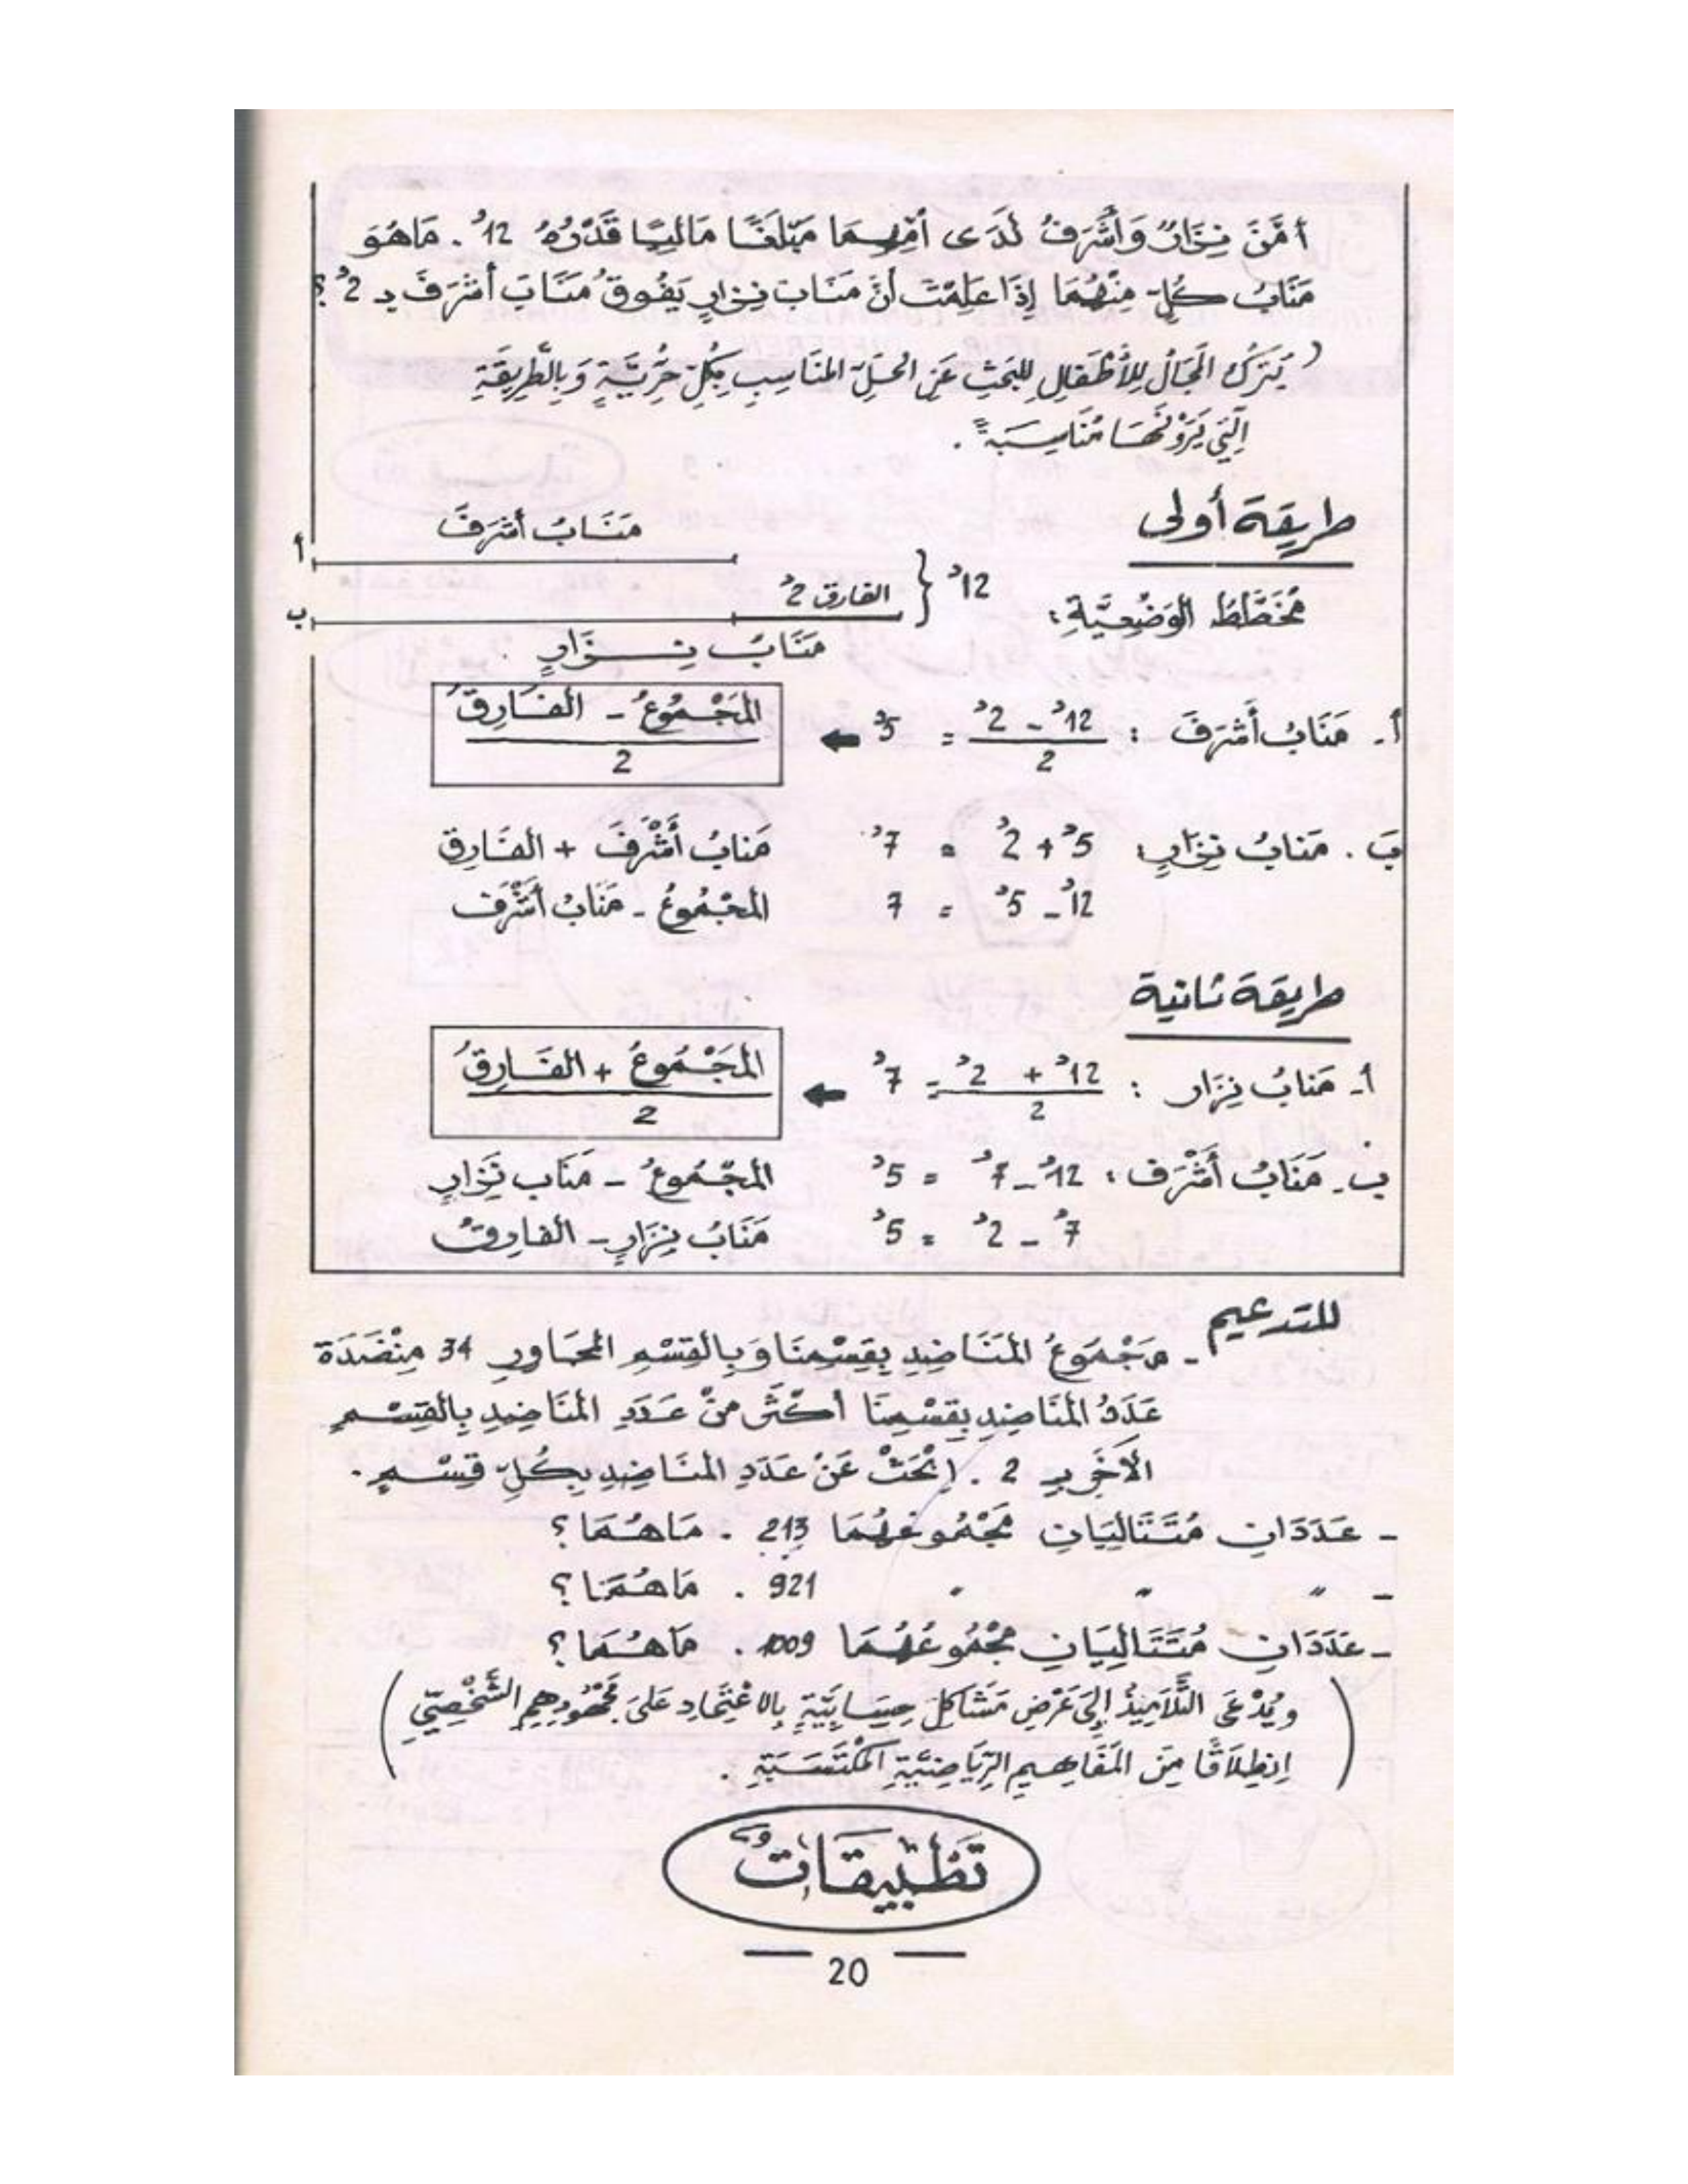 أمَّنَ نِزَارٌ وَأشْرَفُ لَدَى أمِّهِمَا مَبْلَغًا مَالِيًّا قَدْرُهُ 12د. مَا هُوَ
مَنَابُ كُلٍّ مِنْهُمَا إِذَا عَلِمْتَ أنَّ مَنَابَ نِزارٍ يَفُوقُ مَنَابَ أشْرَفَ بـ 2د؟
(يُتْرَكُ المَجَالُ لِلأطْفَالِ لِلبَحْثِ عَنِ الحَلِّ المنَاسِبِ بِكُلِّ حُرِّيَّةٍ وَبِالطَّرِيقَةِ
الّتِي يَرَوْنَهَا مُنَاسِبَةً.
طريقة أولى
مُخَطَّطُ الوَضْعِيَّةِ:
أ مَنَابُ أشْرَفَ
ب الفارق 2د } 12د
مَنَابُ نِزَارٍ
أ- مَنَابُ أَشْرَفَ : (12د - 2د) / 2 = 5د ← (المَجْمُوعُ - الفَارِقُ) / 2
بَ. مَنابُ نِزَارٍ: 5د + 2د = 7د مَنابُ أَشْرَفَ + الفَارِق
12د - 5د = 7 المَجْمُوعُ - مَنَابُ أَشْرَف
طريقة ثانية
أ- مَنابُ نِزَار : (12د + 2د) / 2 = 7د ← (المَجْمُوعُ + الفَارِقُ) / 2
ب- مَنَابُ أَشْرَف: 12د - 7د = 5د المَجْمُوعُ - مَنَاب نِزارٍ
7د - 2د = 5د مَنَابُ نِزَارٍ - الفارِقُ
للتدعيم
- مَجْمُوعُ المَنَاضِدِ بِقِسْمِنَا وَبِالقِسْمِ المجَاوِرِ 34 مِنْضَدَة
عَدَدُ المنَاضِدِ بِقِسْمِنَا أكْثَرُ مِنْ عَدَدِ المنَاضِدِ بِالقِسْمِ
الآخَرِ بـ 2 . اِبْحَثْ عَنْ عَدَدِ المنَاضِدِ بِكُلِّ قِسْمٍ.
- عَدَدَانِ مُتَتَالِيَانِ مَجْمُوعُهُمَا 213 . مَاهُمَا؟
- " " " 921 . مَاهُمَا؟
- عَدَدَانِ مُتَتَالِيَانِ مَجْمُوعُهُمَا 1009 . مَاهُمَا؟
(ويُدْعَى التَّلاَمِيذُ إِلَى عَرْضِ مَشَاكِلَ حِسَابِيَّةٍ بِالاعْتِمَادِ عَلَى مَجْهُودِهِمِ الشَّخْصِيِّ
اِنْطِلاَقًا مِنَ المَفَاهِيمِ الرِّيَاضِيَّةِ المُكْتَسَبَةِ .)
تَطْبِيقَاتٌ
20